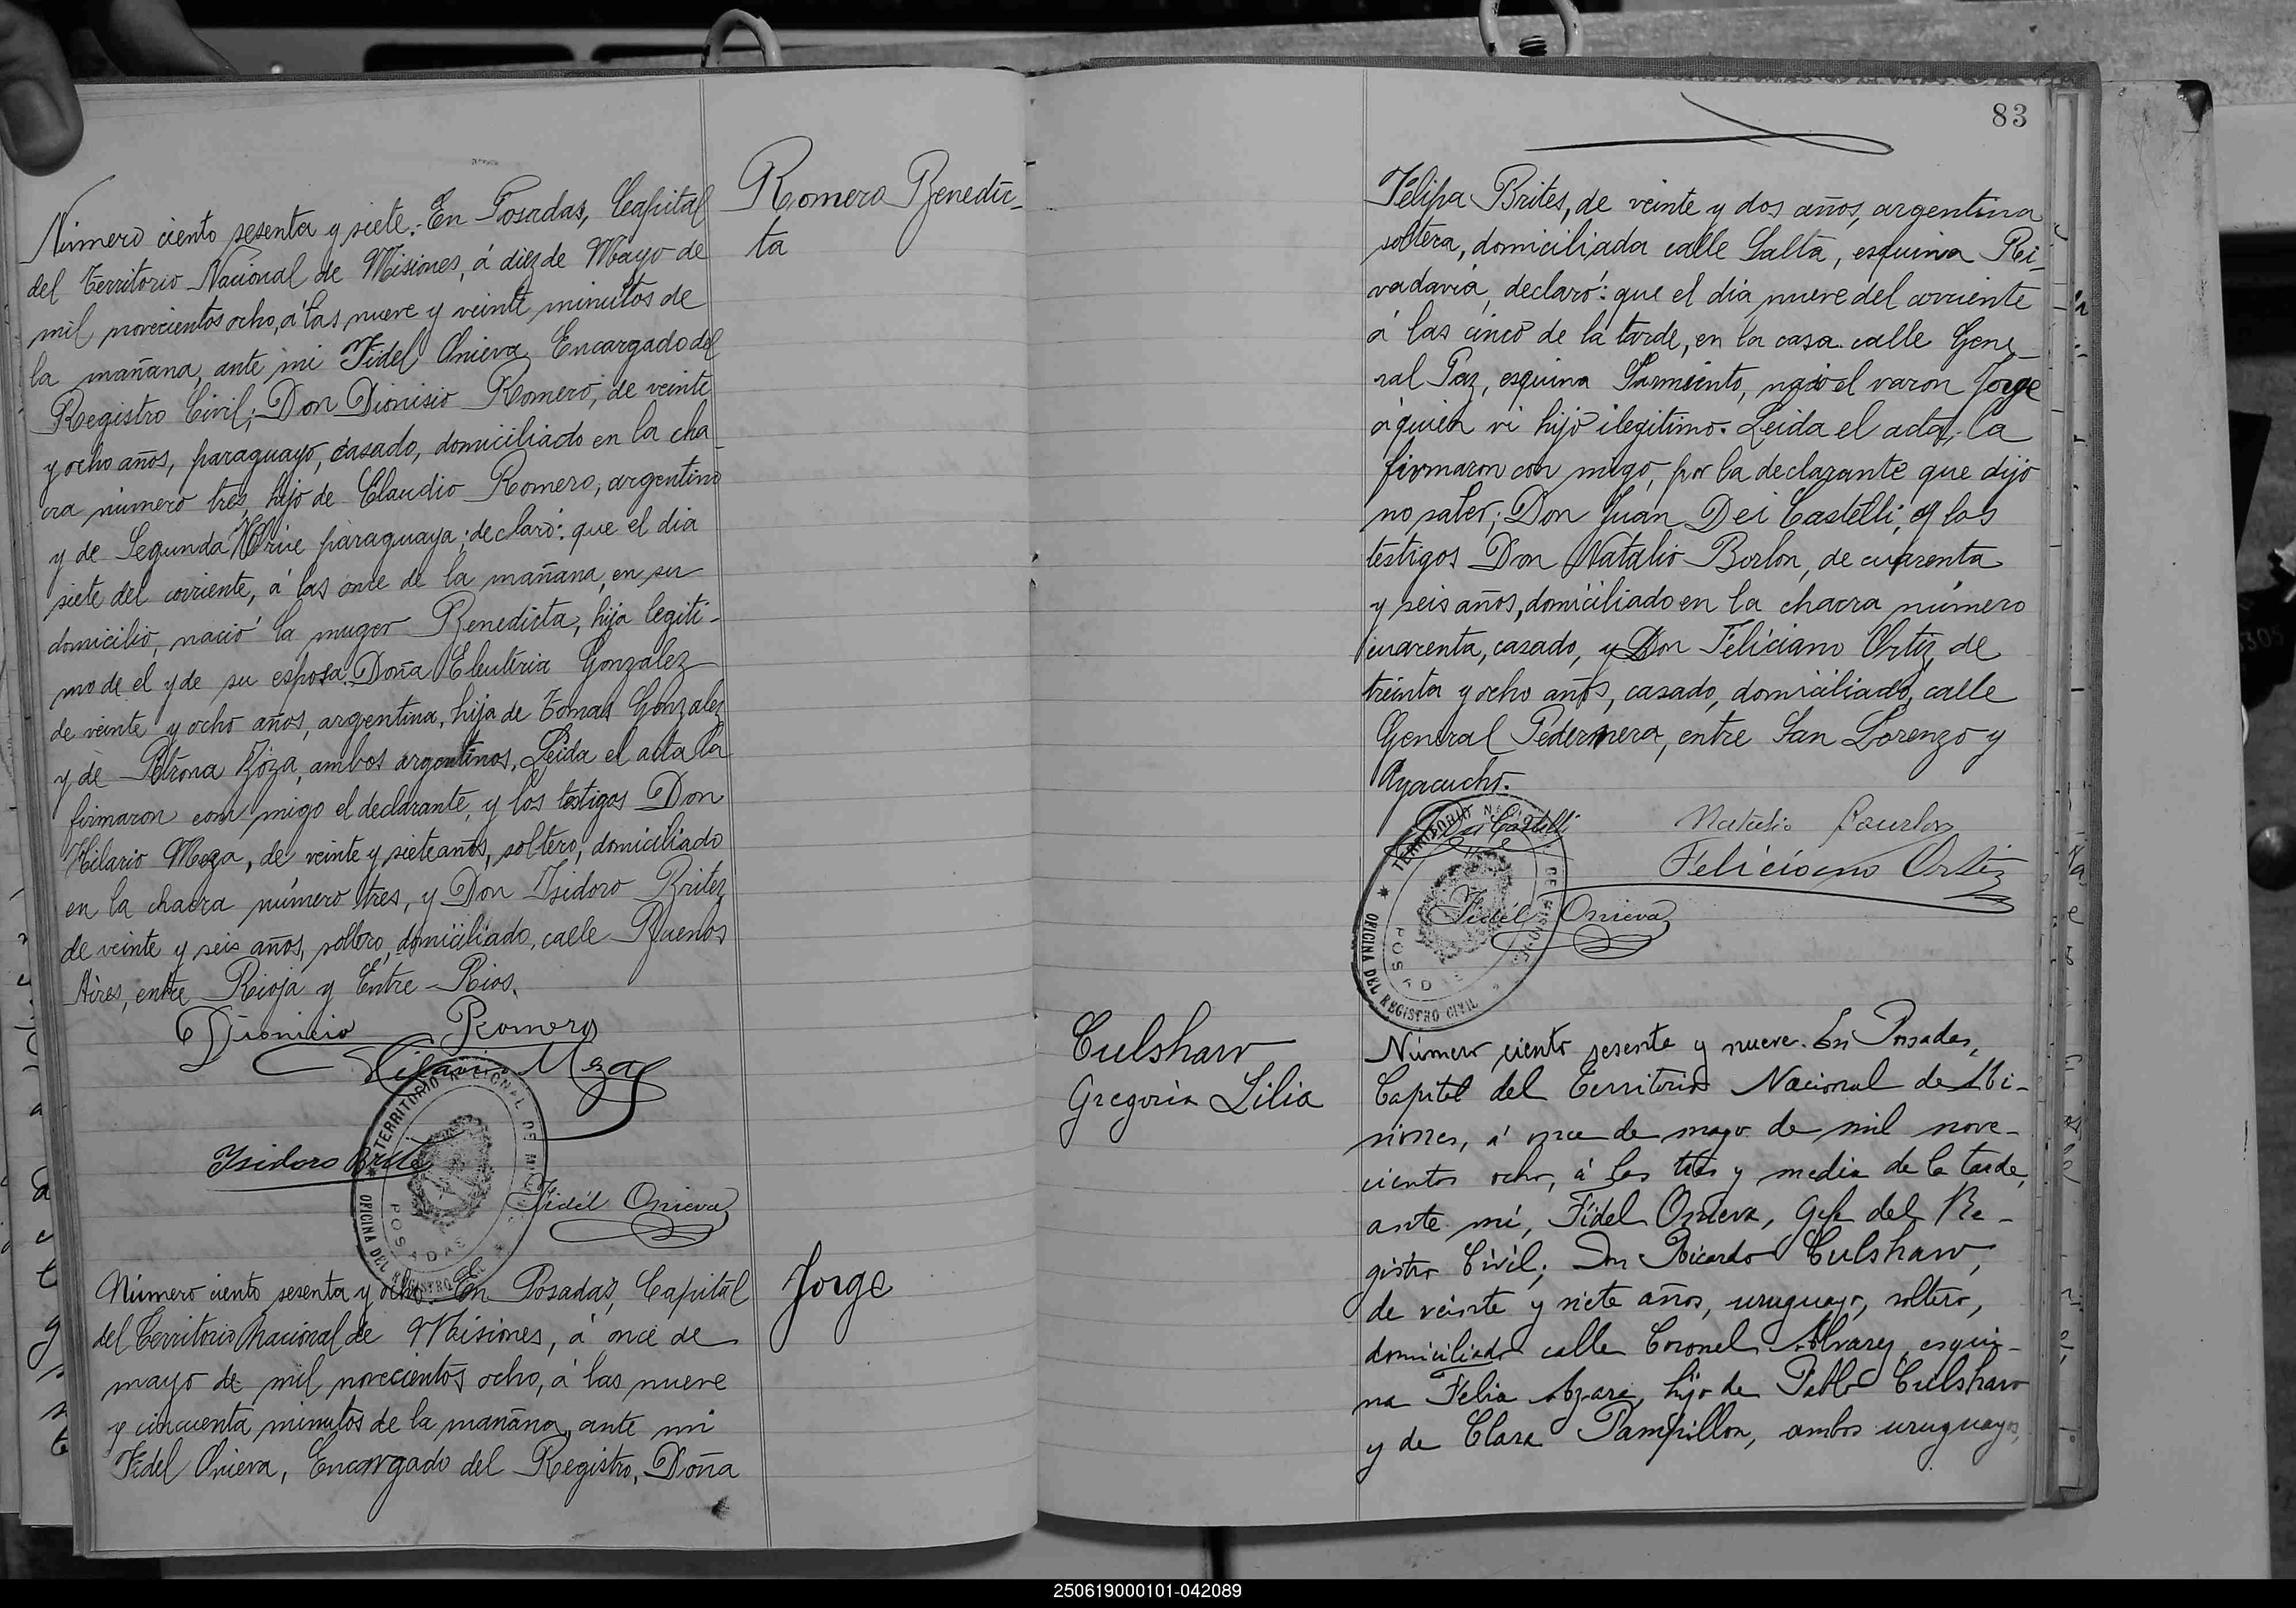 Romero Benedic-
ta
Número ciento sesenta y siete.- En Posadas, Capital
del Territorio Nacional de Misiones, á diez de Mayo de
mil novecientos ocho, á las nueve y veinte minutos de
la mañana, ante mi Fidel Onieva, Encargado del
Registro Civil; Don Dionisio Romero, de veinte
y ocho años, paraguayo, casado, domiciliado en la cha-
cra número tres, hijo de Claudio Romero, argentino
y de Segunda paraguaya; declaró: que el dia
siete del corriente, á las once de la mañana, en su
domicilio, nació la muger Benedicta, hija legiti-
mo de el y de su esposa Doña Eleuteria Gonzalez
de veinte y ocho años, argentina, hija de Tomas Gonzalez
y de Petrona ambos argentinos. Leida el acta la
firmaron con migo el declarante, y los testigos Don
Hilario Meza, de veinte y siete años, soltero, domiciliado
en la chacra número tres, y Don Isidoro Britez
de veinte y seis años, soltero, domiciliado, calle Buenos
Aires, entre Rioja y Entre-Rios.
Dionicio Romero
Hilario Meza
Isidoro Brite
Fidel Onieva
TERRITORIO NACIONAL DE MISIONES
OFICINA DEL REGISTRO CIVIL
POSADAS
Jorge
Número ciento sesenta y ocho. En Posadas, Capital
del Territorio Nacional de Misiones, á once de
mayo de mil novecientos ocho, á las nueve
y cincuenta minutos de la mañana, ante mi
Fidel Onieva, Encargado del Registro, Doña
83
Felipa Brites, de veinte y dos años, argentina
soltera, domiciliada calle Salta, esquina Ri-
vadavia, declaró: que el dia nueve del corriente
á las cinco de la tarde, en la casa calle Gene-
ral Paz, esquina Sarmiento, nació el varon Jorge
á quien vi hijo ilegitimo. Leida el acta, la
firmaron con migo, por la declarante que dijo
no saber; Don Juan Dei Castelli, y los
testigos Don Natalio Borlon, de cuarenta
y seis años, domiciliado en la chacra número
cuarenta, casado, y Don Feliciano Ortiz, de
treinta y ocho años, casado, domiciliado, calle
General Pedernera, entre San Lorenzo y
Ayacucho.
Dei Castelli
Natalio Bourlon
Feliciano Ortiz
Fidel Onieva
TERRITORIO NACIONAL DE MISIONES
OFICINA DEL REGISTRO CIVIL
POSADAS
Culshaw
Gregoria Lilia
Número ciento sesenta y nueve. En Posadas,
Capital del Territorio Nacional de Mi-
siones, á once de mayo de mil nove-
cientos ocho, á las tres y media de la tarde,
ante mí, Fidel Onieva, Gefe del Re-
gistro Civil; Don Ricardo Culshaw,
de veinte y siete años, uruguayo, soltero,
domiciliado calle Coronel Alvarez, esqui-
na Felix Azara, hijo de Pablo Culshaw
y de Clara Pampillon, ambos uruguayos,
250619000101-042089